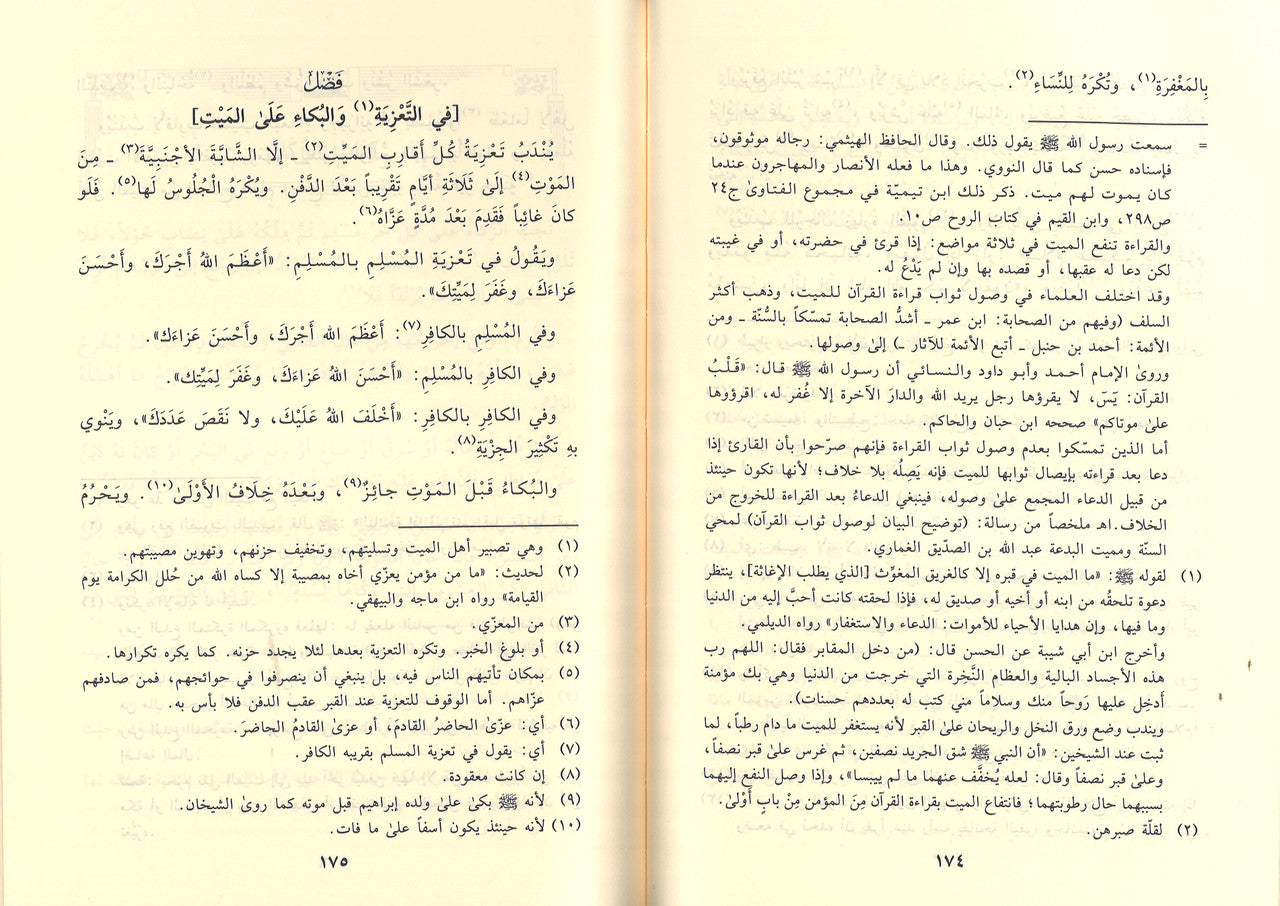 بِالمَغْفِرَةِ(١)، وتُكْرَهُ لِلنِّسَاءِ(٢).
= سمعت رسول الله ﷺ يقول ذلك. وقال الحافظ الهيثمي: رجاله موثوقون،
فإسناده حسن كما قال النووي. وهذا ما فعله الأنصار والمهاجرون عندما
كان يموت لهم ميت. ذكر ذلك ابن تيميّة في مجموع الفتاوىٰ ج٢٤
ص٢٩٨، وابن القيم في كتاب الروح ص١٠.
والقراءة تنفع الميت في ثلاثة مواضع: إذا قرئ في حضرته، أو في غيبته
لكن دعا له عقبها، أو قصده بها وإن لم يَدْعُ له.
وقد اختلف العلماء في وصول ثواب قراءة القرآن للميت، وذهب أكثر
السلف (وفيهم من الصحابة: ابن عمر ـ أشدُّ الصحابة تمسّكاً بالسُّنّة ـ ومن
الأئمة: أحمد بن حنبل ـ أتبع الأئمة للآثار ـ) إلىٰ وصولها.
وروىٰ الإمام أحمد وأبو داود والنسائي أن رسول الله ﷺ قال: «قَلْبُ
القرآن: يٓسٓ، لا يقرؤها رجل يريد الله والدارَ الآخرة إلا غُفر له، اقرؤوها
علىٰ موتاكم» صححه ابن حبان والحاكم.
أما الذين تمسّكوا بعدم وصول ثواب القراءة فإنهم صرّحوا بأن القارئ إذا
دعا بعد قراءته بإيصال ثوابها للميت فإنه يَصِلُه بلا خلاف؛ لأنها تكون حينئذ
من قبيل الدعاء المجمع علىٰ وصوله، فينبغي الدعاءُ بعد القراءة للخروج من
الخلاف.اهـ ملخصاً من رسالة: (توضيح البيان لوصول ثواب القرآن) لمحي
السنّة ومميت البدعة عبد الله بن الصدّيق الغماري.
(١) لقوله ﷺ: «ما الميت في قبره إلا كالغريق المغوِّث [الذي يطلب الإغاثة]، ينتظر
دعوة تلحقُه من ابنه أو أخيه أو صديق له، فإذا لحقته كانت أحبَّ إليه من الدنيا
وما فيها، وإن هدايا الأحياء للأموات: الدعاء والاستغفار» رواه الديلمي.
وأخرج ابن أبي شيبة عن الحسن قال: (من دخل المقابر فقال: اللهم رب
هذه الأجساد البالية والعظام النَّخِرة التي خرجت من الدنيا وهي بك مؤمنة
أدخِل عليها رَوحاً منك وسلاماً مني كتب له بعددهم حسنات).
ويندب وضع ورق النخل والريحان علىٰ القبر لأنه يستغفر للميت ما دام رطباً، لما
ثبت عند الشيخين: «أن النبي ﷺ شق الجريد نصفين، ثم غرس علىٰ قبر نصفاً،
وعلىٰ قبر نصفاً وقال: لعله يُخفَّف عنهما ما لم ييبسا»، وإذا وصل النفع إليهما
بسببهما حال رطوبتهما؛ فانتفاع الميت بقراءة القرآن مِنَ المؤمن مِنْ بابٍ أَوْلىٰ.
(٢) لقلّة صبرهن.
١٧٤
فَصْلٌ
[في التَّعْزِيَةِ(١) وَالبُكاءِ عَلَىٰ المَيْتِ]
يُنْدَبُ تَعْزِيَةُ كُلِّ أقارِبِ المَيِّتِ(٢) ـ إلَّا الشَّابَّةَ الأجْنَبِيَّةَ(٣) ـ مِنَ
المَوْتِ(٤) إلَىٰ ثَلاثَةِ أيَّامٍ تَقْرِيباً بَعْدَ الدَّفْنِ. ويُكْرَهُ الْجُلُوسُ لَها(٥). فَلَو
كانَ غائِباً فَقَدِمَ بَعْدَ مُدَّةٍ عَزَّاهُ(٦).
ويَقُولُ في تَعْزِيَةِ المُسْلِمِ بالمُسْلِمِ: «أَعْظَمَ اللهُ أجْرَكَ، وأَحْسَنَ
عَزاءَكَ، وغَفَرَ لِمَيِّتِكَ».
وفي المُسْلِمِ بالكافِرِ(٧): أَعْظَمَ الله أجْرَكَ، وأَحْسَنَ عَزاءَك».
وفي الكافِرِ بالمُسْلِمِ: «أَحْسَنَ اللهُ عَزاءَكَ، وغَفَرَ لِمَيِّتِك».
وفي الكافِرِ بالكافِرِ: «أَخْلَفَ اللهُ عَلَيْكَ، ولا نَقَصَ عَدَدَكَ»، ويَنْوِي
بهِ تَكْثِيرَ الجِزْيَةِ(٨).
والبُكاءُ قَبْلَ المَوْتِ جائِزٌ(٩)، وبَعْدَهُ خِلَافُ الأَوْلَىٰ(١٠). ويَحْرُمُ
(١) وهي تصبير أهل الميت وتسليتهم، وتخفيف حزنهم، وتهوين مصيبتهم.
(٢) لحديث: «ما من مؤمن يعزّي أخاه بمصيبة إلا كساه الله من حُلل الكرامة يوم
القيامة» رواه ابن ماجه والبيهقي.
(٣) من المعزّي.
(٤) أو بلوغ الخبر. وتكره التعزية بعدها لئلا يجدد حزنه. كما يكره تكرارها.
(٥) بمكان تأتيهم الناس فيه، بل ينبغي أن ينصرفوا في حوائجهم، فمن صادفهم
عزّاهم. أما الوقوف للتعزية عند القبر عقب الدفن فلا بأس به.
(٦) أي: عزّىٰ الحاضرُ القادمَ، أو عزىٰ القادمُ الحاضرَ.
(٧) أي: يقول في تعزية المسلم بقريبه الكافر.
(٨) إن كانت معقودة.
(٩) لأنه ﷺ بكىٰ علىٰ ولده إبراهيم قبل موته كما روىٰ الشيخان.
(١٠) لأنه حينئذ يكون أسفاً علىٰ ما فات.
١٧٥